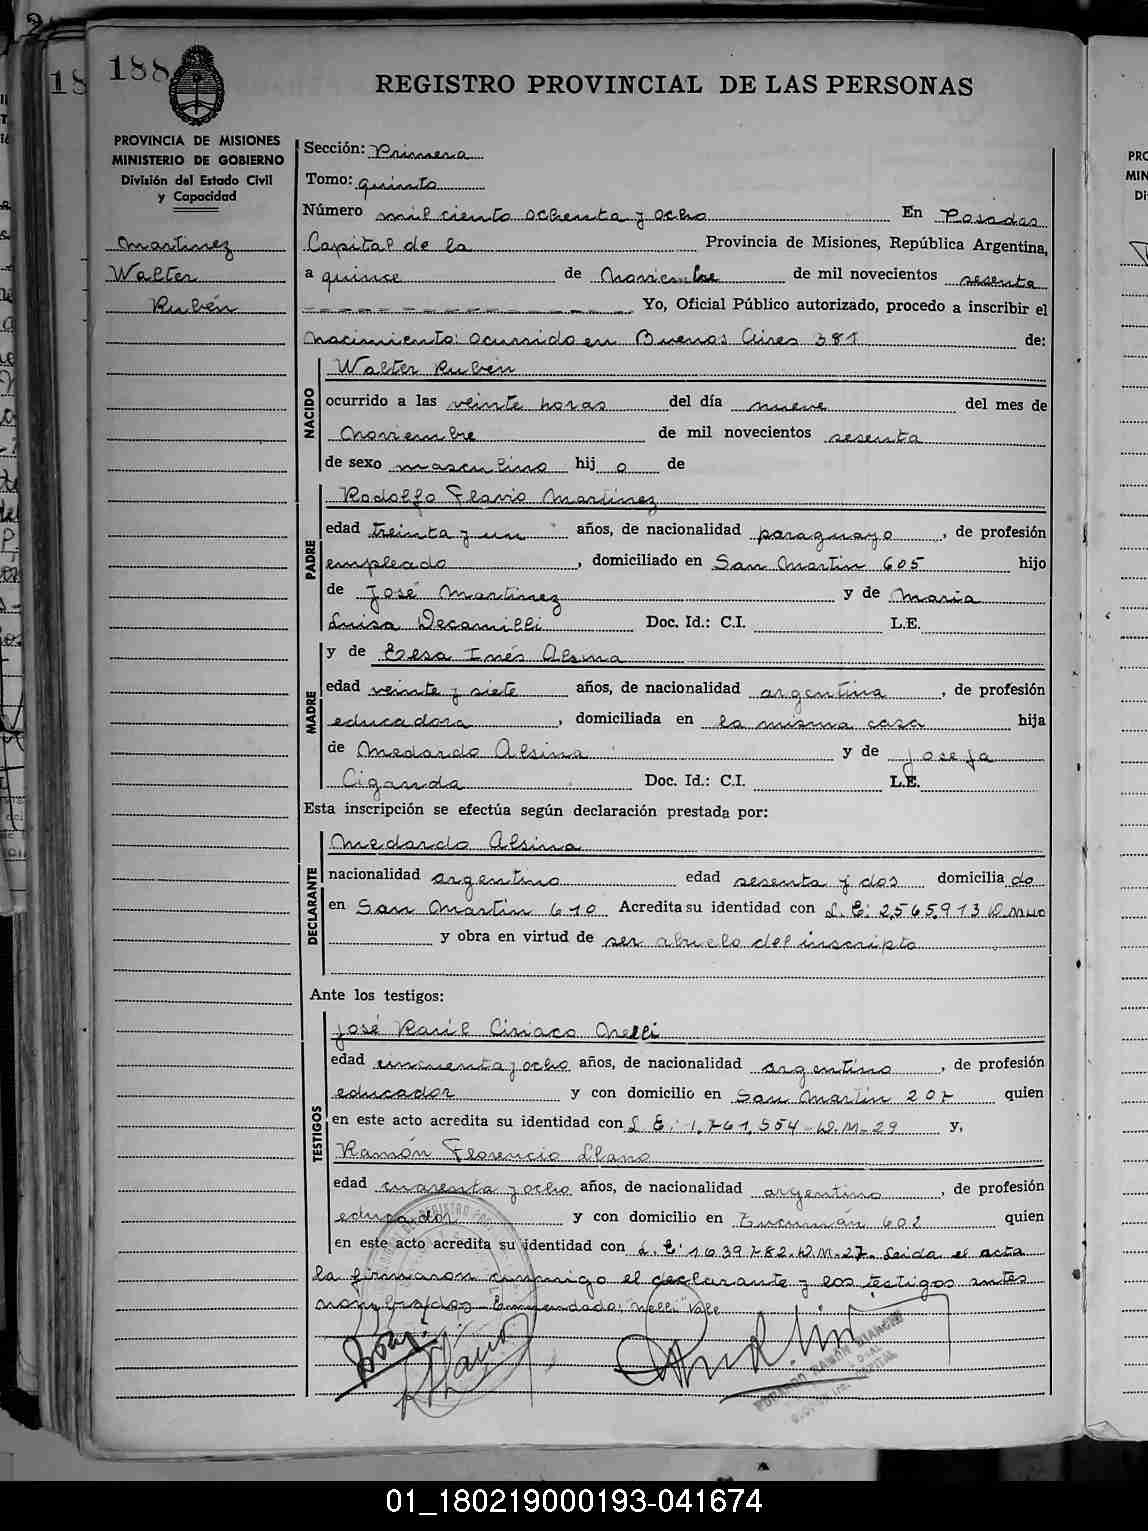 188
REGISTRO PROVINCIAL DE LAS PERSONAS
PROVINCIA DE MISIONES
MINISTERIO DE GOBIERNO
División del Estado Civil
y Capacidad
Martinez
Walter
Rubén
Sección: Primera
Tomo: quinto
Número mil ciento ochenta y ocho En Posadas
Capital de la Provincia de Misiones, República Argentina,
a quince de Noviembre de mil novecientos sesenta
Yo, Oficial Público autorizado, procedo a inscribir el
Nacimiento: ocurrido en Buenos Aires 381 de:
NACIDO
Walter Rubén
ocurrido a las veinte horas del día nueve del mes de
Noviembre de mil novecientos sesenta
de sexo masculino hij o de
PADRE
Rodolfo Flavio Martinez
edad treinta y un años, de nacionalidad paraguayo, de profesión
empleado, domiciliado en San Martin 605 hijo
de José Martinez y de Maria
Luisa Decamilli Doc. Id.: C.I. L.E.
MADRE
y de Elsa Inés Alsina
edad veinte y siete años, de nacionalidad argentina, de profesión
educadora, domiciliada en la misma casa hija
de Medardo Alsina y de Josefa
Ciganda Doc. Id.: C.I. L.E.
Esta inscripción se efectúa según declaración prestada por:
DECLARANTE
Medardo Alsina
nacionalidad argentino edad sesenta y dos domicilia do
en San Martin 610 Acredita su identidad con L. E: 2.565.913
y obra en virtud de ser abuelo del inscripto
Ante los testigos:
TESTIGOS
José Raúl Ciriaco Nelli
edad cincuenta y ocho años, de nacionalidad argentino, de profesión
educador y con domicilio en San Martin 207 quien
en este acto acredita su identidad con L E: 1.761.554 D.M. 29 y,
Ramón Florencio Llano
edad cuarenta y ocho años, de nacionalidad argentino, de profesión
educador y con domicilio en Tucumán 602 quien
en este acto acredita su identidad con L. E: 1639782. D.M. 27. Leida el acta
la firmaron conmigo el declarante y los testigos antes
nombrados - Enmendado: "Nelli" Vale
01_180219000193-041674